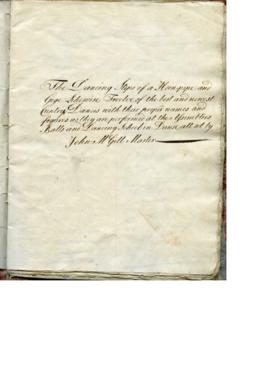 The Dancing Steps of a Hornpipe and
Gigg likewise Twelve of the best and newest
Contry Dances with their proper names and
figures as they are performed at the Assemblies
Balls and Dancing School in Dunse all at by
John McGill Master